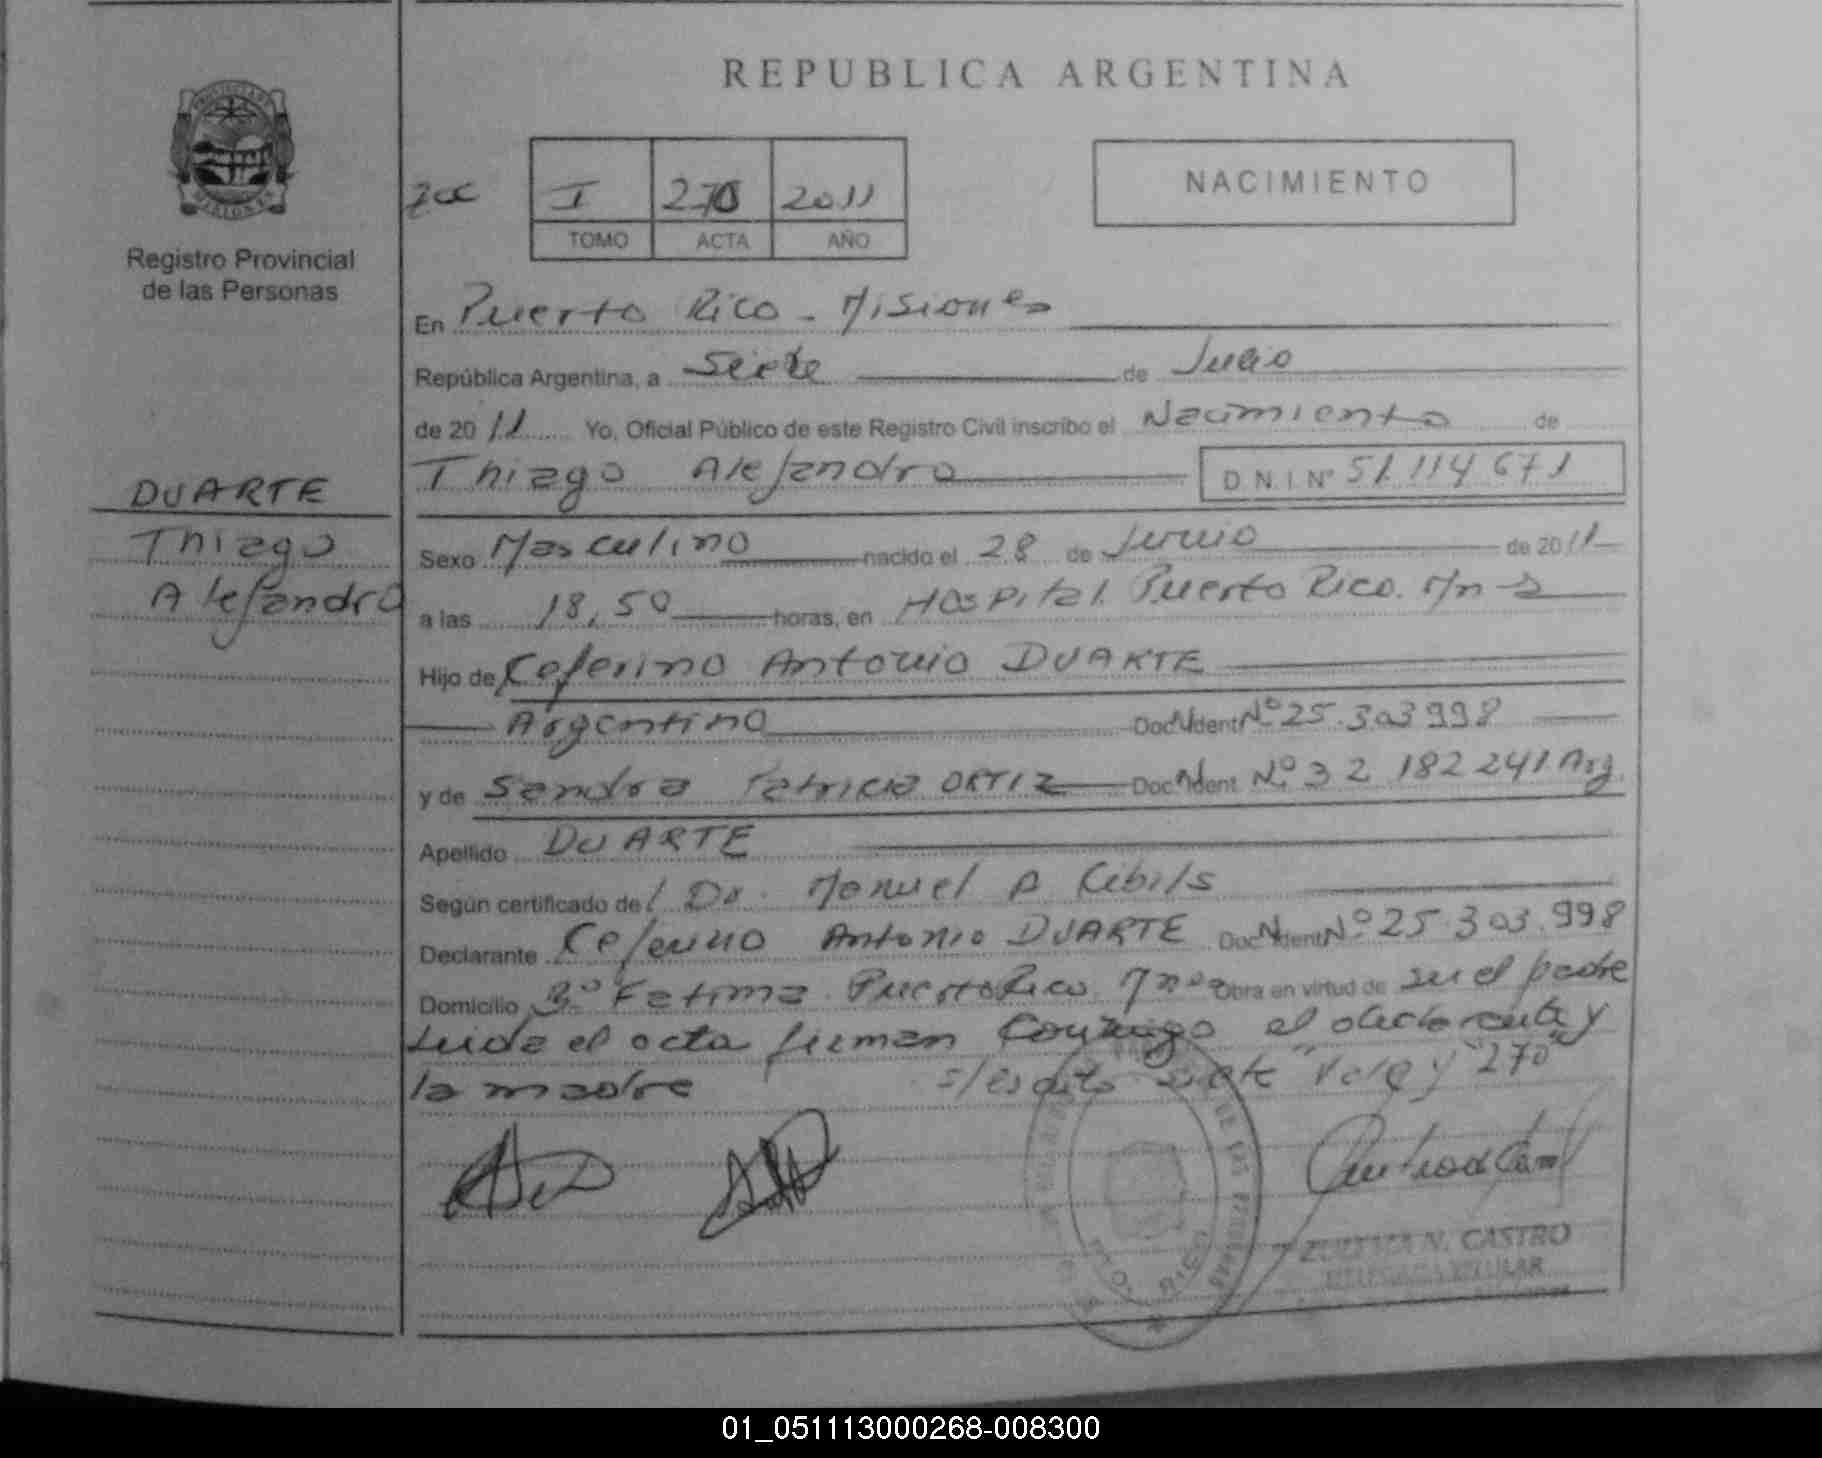 REPUBLICA ARGENTINA
PROVINCIA DE
MISIONES
Registro Provincial
de las Personas
I 270 2011
TOMO ACTA AÑO
NACIMIENTO
En Puerto Rico - Misiones
República Argentina, a Siete de Julio
de 2011 Yo, Oficial Público de este Registro Civil inscribo el Nacimiento de
Thiago Alejandro D.N.I Nº 51.114 671
DUARTE
Thiago
Alejandro
Sexo Masculino nacido el 28 de Junio de 2011
a las 18,50 horas, en Hospital Puerto Rico. Mn-s
Hijo de Ceferino Antonio DUARTE
Argentino Doc. Ident Nº 25.303998
y de Sandra Patricia ORTIZ Doc. Ident Nº 32 182 241 Arg.
Apellido DUARTE
Según certificado del Dr. Manuel A Cibils
Declarante Ceferino Antonio DUARTE Doc. Ident Nº 25.303.998
Domicilio Bº Fatima Puerto Rico Mnes Obra en virtud de ser el padre
Leida el acta firman conmigo el declarante y
la madre s/escrito siete "Vale y "270"
ZULEMA N. CASTRO
DELEGADA TITULAR
DE LAS PERSONAS
PTO. RICO
01_051113000268-008300